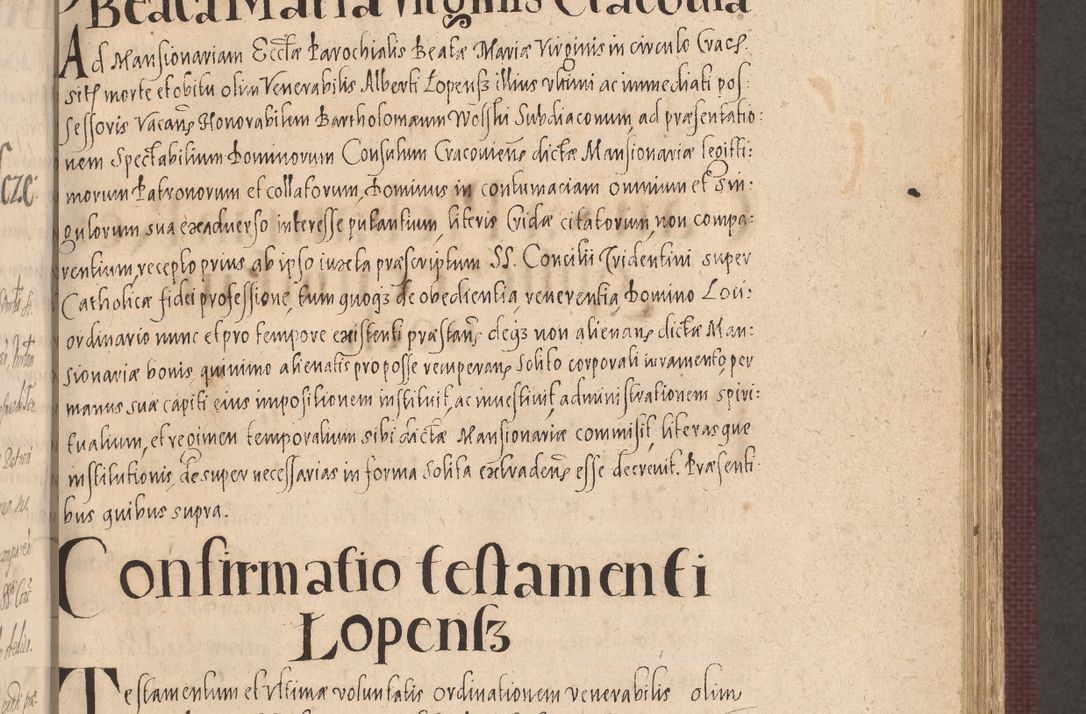 Beata Maria virginis Cracovia
Ad Mansionariam Ecctæ Parochialis Beatæ Mariæ Virginis in circulo Crac:
sitæ morte et obitu olim Venerabilis Alberti Lopensz illius ultimi ac immediati pos
sessoris Vacan̄ Honorabilem Bartholomæum Wolski Subdiaconum, ad præsentatio:
nem Spectabilium Dominorum Consulum Cracovien̄ dictæ Mansionariæ legitti:
morum Patronorum et collatorum, Dominus in contumaciam omnium et sin:
gulorum sua exadverso interesse putantium, literis Cridæ citatorum, non compa:
rentium, recepto prius ab ipso iuxta præscriptum SS. Concilii Tridentini super
Catholicæ fidei professione, tum quoqz de obedientia, reverentia, Domino Loci:
ordinario nunc et pro tempore existenti præstan̄ deqz non alienan̄ dictæ Man:
sionariæ bonis, quinimo alienatis pro posse recuperan̄ solito corporali iuramento, per
manus suæ capiti eius impositionem instituit, ac investivit, administrationem spiri:
tualium, et regimen temporalium sibi dictæ Mansionariæ commisit, literasque
institutionis, desuper necessarias in forma solita extraden̄ esse decrevit. Præsenti:
bus quibus supra.
Confirmatio testamenti
Lopensz
Testamentum et Ultimæ voluntatis ordinationem venerabilis olim